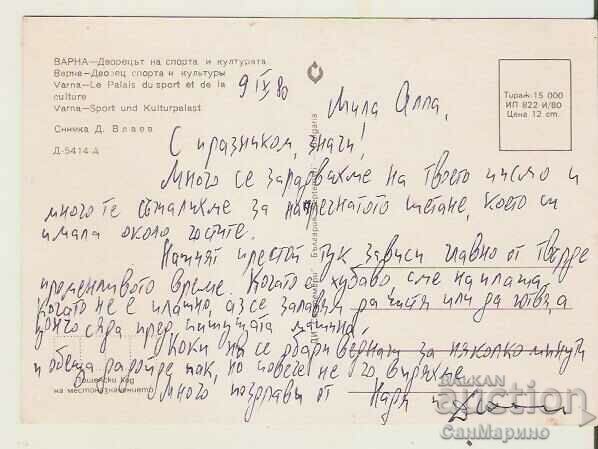 ВАРНА—Дворецът на спорта и културата
Варна—Дворец спорта и культуры
Varna—Le Palais du sport et de la
culture
Varna—Sport und Kulturpalast
Снимка Д. Влаев
Д-5414-А
Тираж 15 000
ИП 822 И/80
Цена 12 ст.
9 IX 80
Мила Алла,
С празником, значи!
Много се зарадвахме на твоето писмо и
много те съжалихме за напрегнатото щетане, което си
имала около гостите.
Нашият престой тук зависи главно от твърде
променливото време. Когато е хубаво сме на плажа,
когато не е плажно, аз се залавям да чистя или да готвя, а
Дончо сяда пред пишущата машина.
Коки ни се обади веднъж за няколко минути
и обеща да дойде пак, но повече не го видяхме.
Много поздрави от Надя и
Пощенски код
на местоназначението
BALKAN
auction
СанМарино